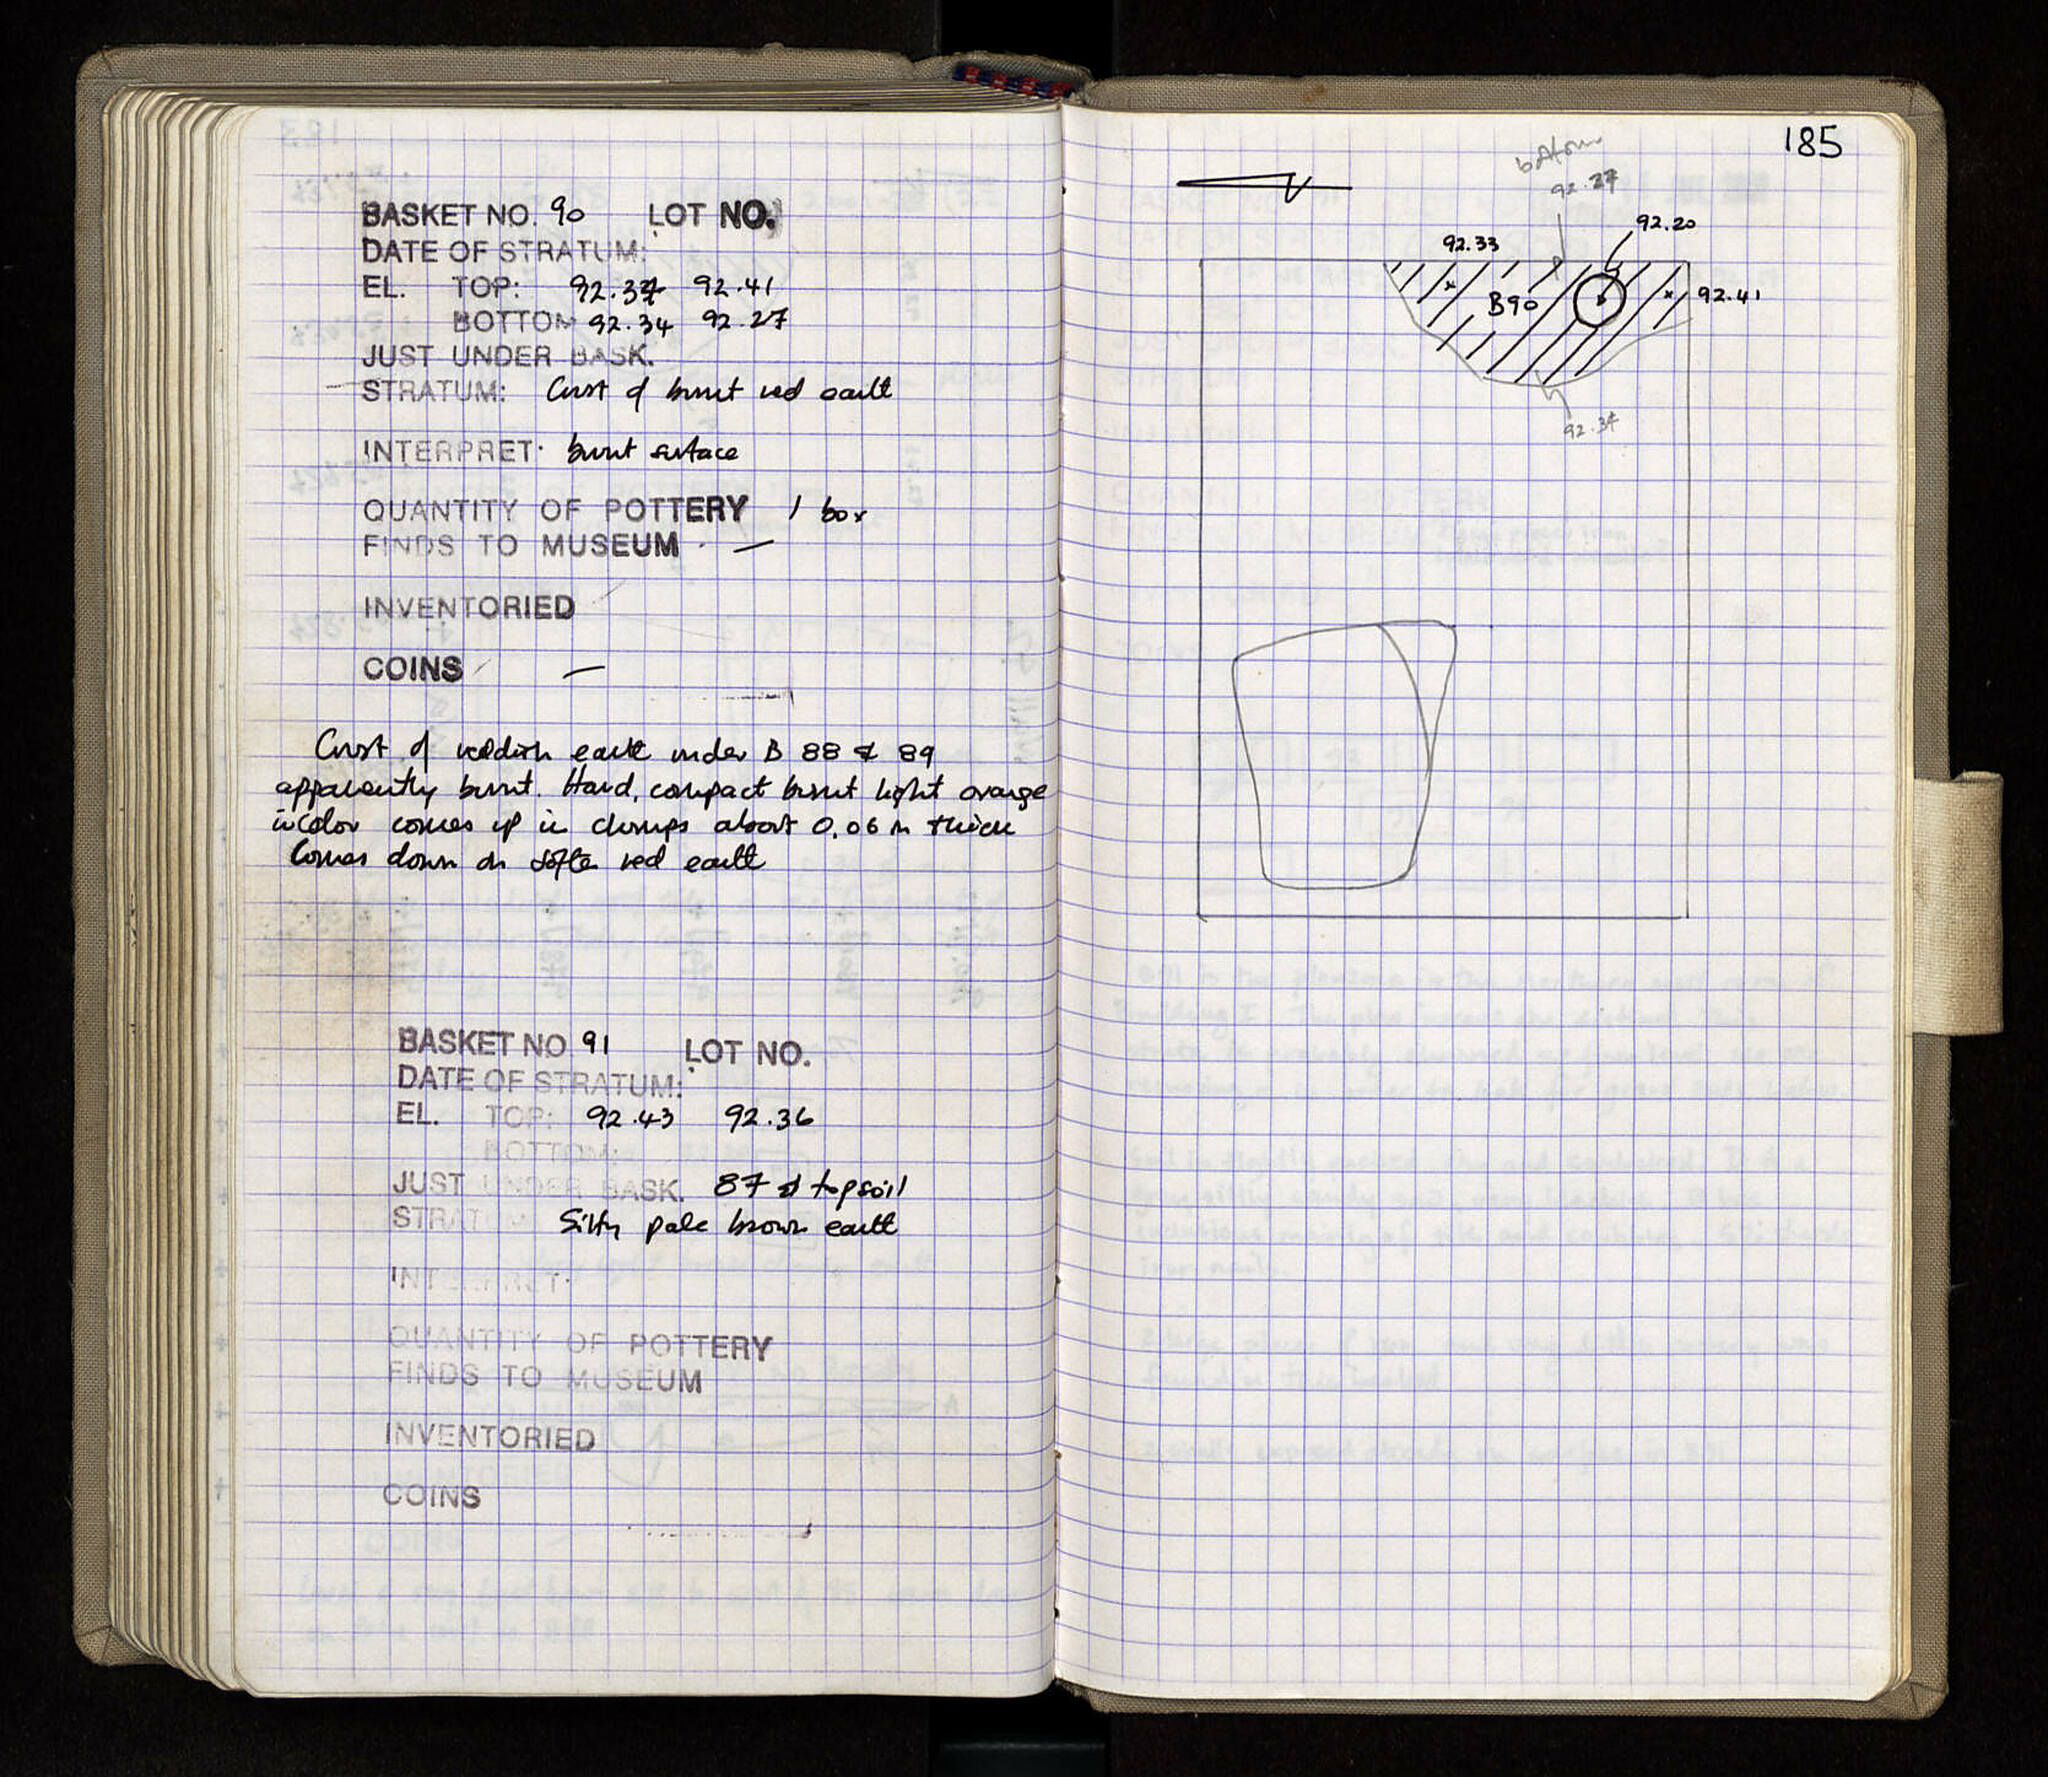 BASKET NO. 90 LOT NO.
DATE OF STRATUM:
EL. TOP: 92.34 92.41
BOTTOM 92.34 92.27
JUST UNDER BASK.
STRATUM: Crust of burnt red earth
INTERPRET: burnt surface
QUANTITY OF POTTERY 1 box
FINDS TO MUSEUM —
INVENTORIED
COINS —
Crust of reddish earth under B 88 & 89
apparently burnt. Hard, compact burnt light orange
in color comes up in clumps about 0.06 m thick
Comes down on softer red earth
BASKET NO 91 LOT NO.
DATE OF STRATUM:
EL. TOP: 92.43 92.36
BOTTOM:
JUST UNDER BASK. 87 & topsoil
STRATUM Silty pale brown earth
INTERPRET:
QUANTITY OF POTTERY
FINDS TO MUSEUM
INVENTORIED
COINS
185
bottom
92.27
92.20
92.33
B90
92.41
92.34